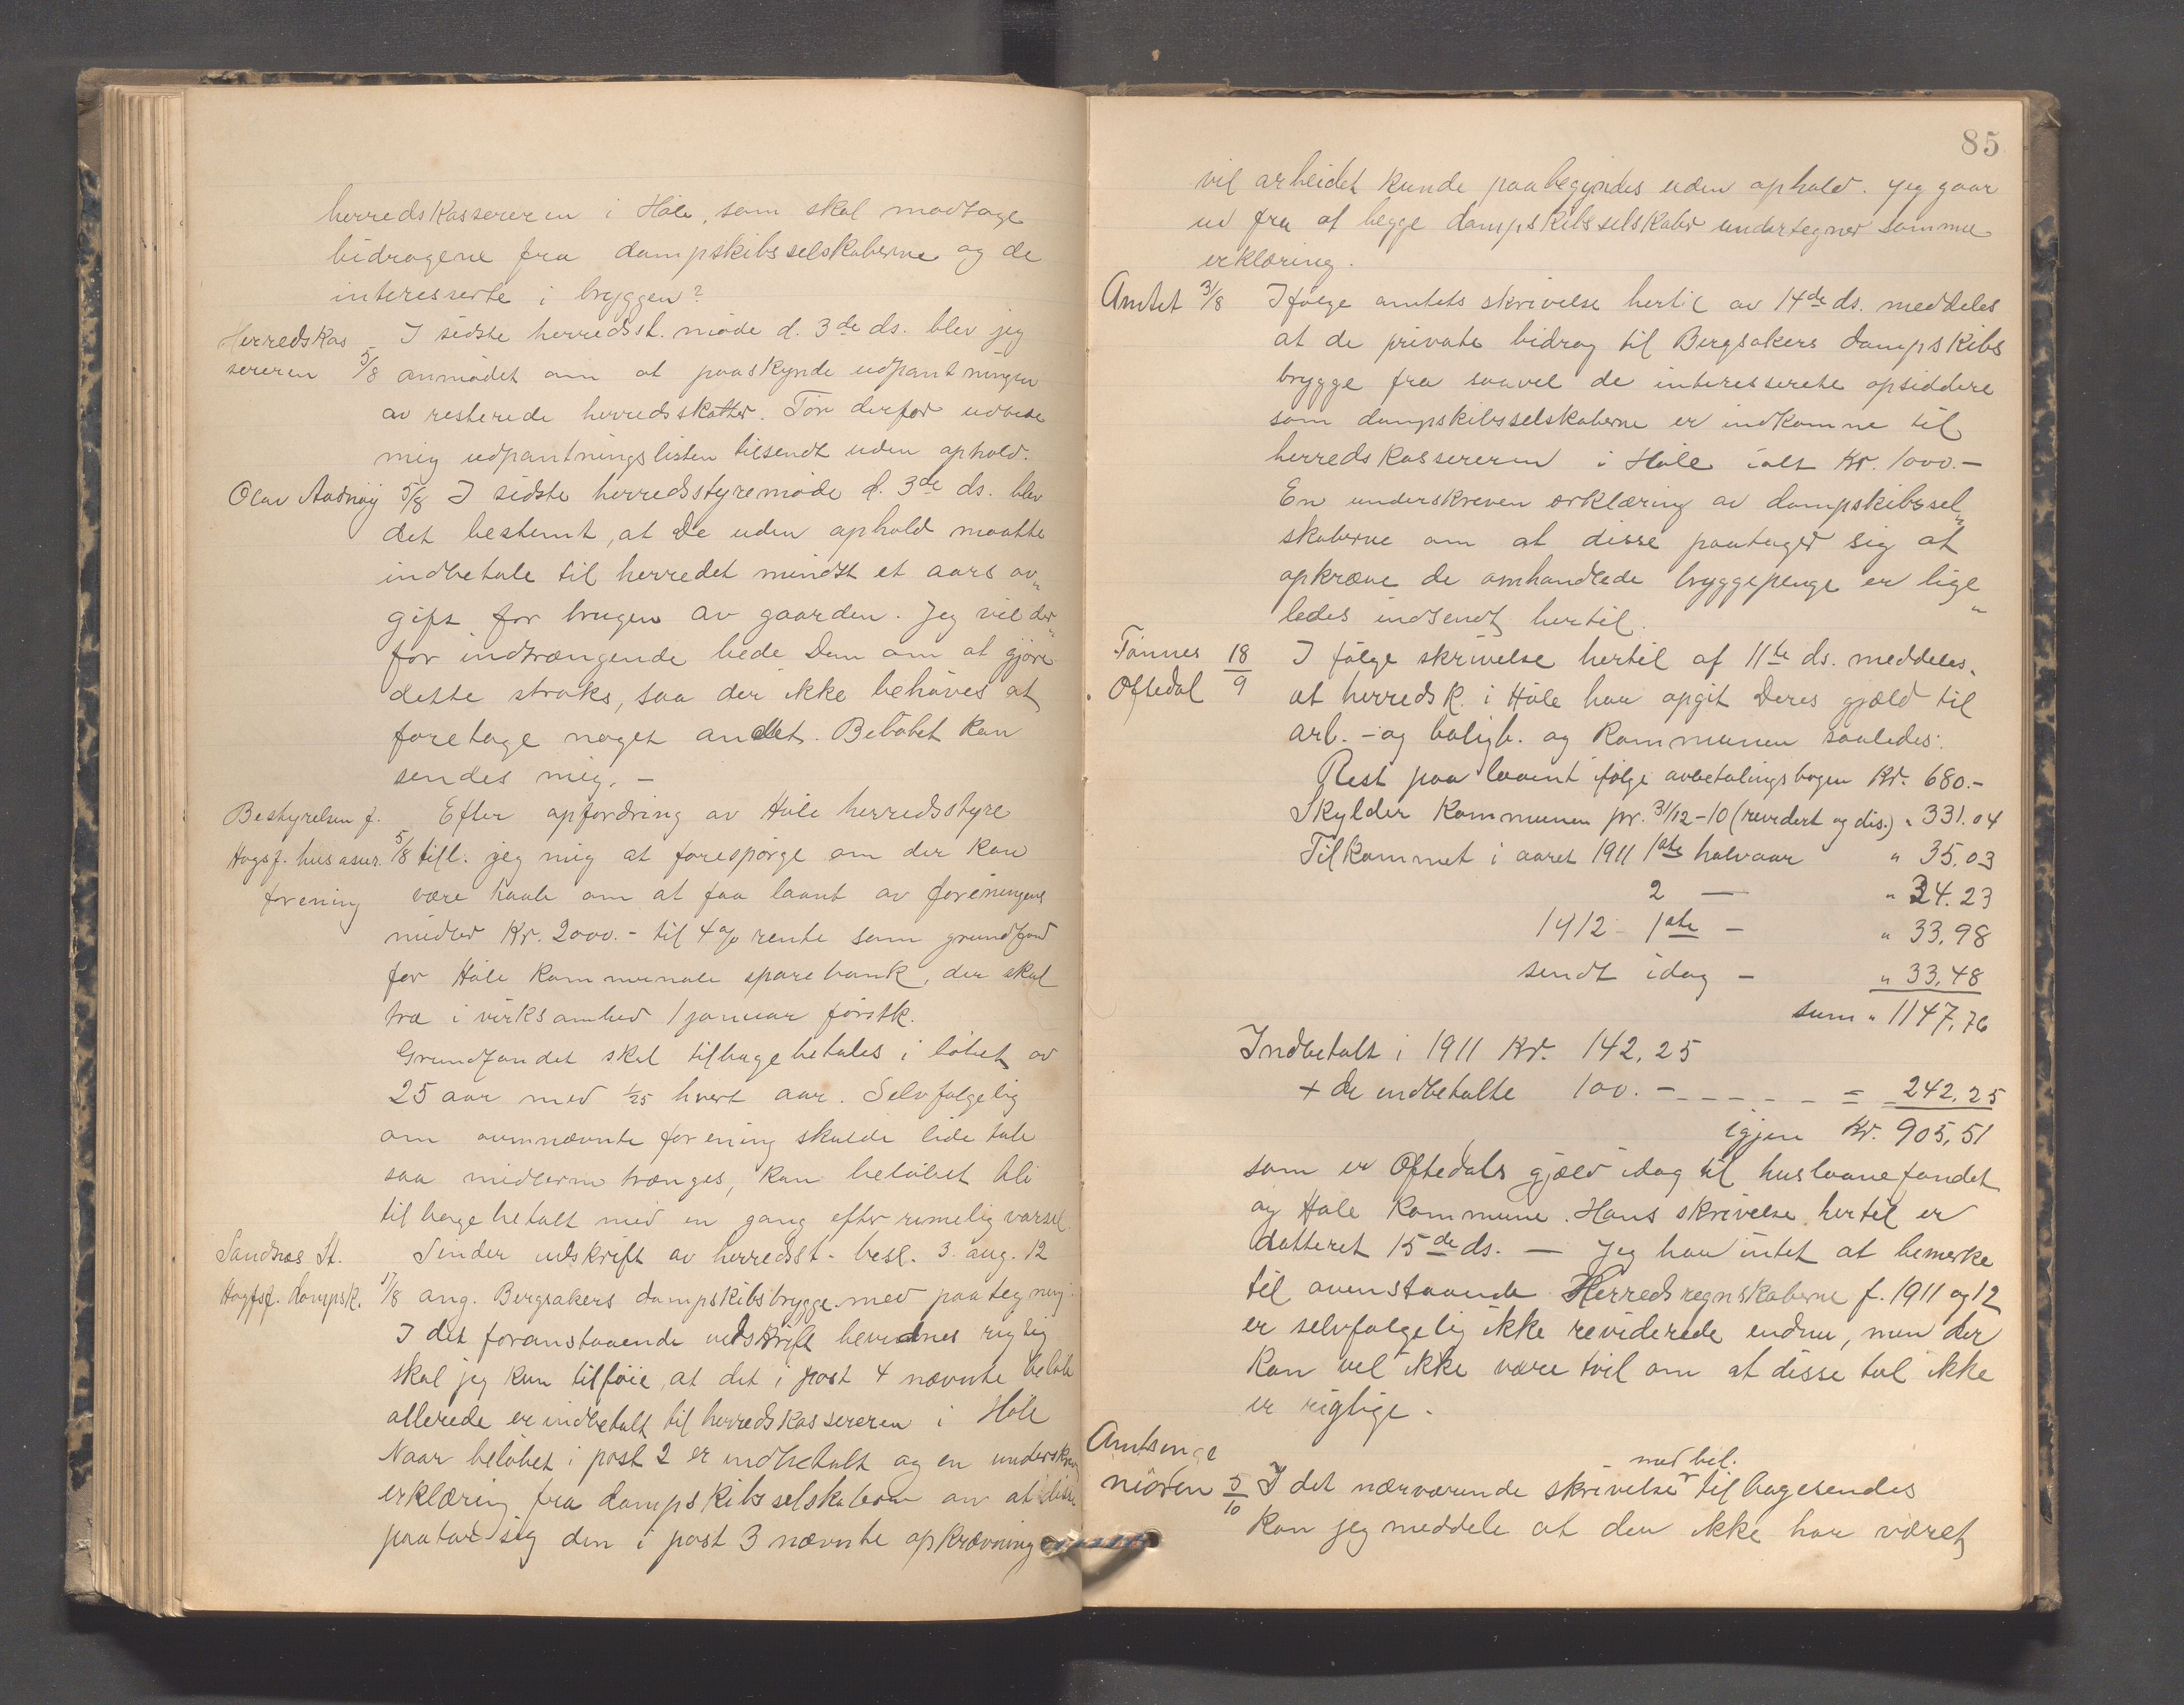 herredskassereren i Høle, som skal modtage
bidragene fra dampskibsselskaberne og de
interesserte i bryggen?
Herredskas
sereren 5/8
I sidste herredsst. møde d. 3de ds. blev jeg
anmodet om at paaskynde udpantningen
av resterede herredsskatter. Tør derfor udbede
mig udpantningslisten tilsendt uden ophold.
Olav Aadnøy 5/8 I sidste herredsstyremøde d. 3de ds. blev
det bestemt, at De uden ophold maatte
indbetale til herredet mindst et aars av„
gift for brugen av gaarden. Jeg vil der„
for indtrængende bede Dem om at gjøre
dette straks, saa der ikke behøves at
foretage noget andet. Beløbet kan
sendes mig. –
Bestyrelsen f.
Høgsf. husasur. 5/8
forening
Efter opfordring av Høle herredsstyre
till. jeg mig at forespørge om der kan
være haab om at faa laant av foreningens
midler Kr. 2000.- til 4% rente som grundfond
for Høle kommunale sparebank, der skal
træ i virksamhed 1 januar førstk.
Grundfondet skal tilbagebetales i løbet av
25 aar med 1/25 hvert aar. Selvfølgelig
om ovennævnte forening skulde lide tab
saa midlerne trænges, kan beløbet bli
tilbagebetalt med en gang efter rimelig varsel.
Sandnæs St.
Høgsf. dampsk. 17/8
Sender utskrift av herredsst. besl. 3. aug. 12
ang. Bergsakers dampskibsbrygge med paategning
I det foranstaaende utskrift bevidnes rigtig
skal jeg kun tilføie, at det i post 4 nævnte beløb
allerede er indbetalt til herredskassereren i Høle
Naar beløbet i post 2 er indbetalt og en underskrev
erklæring fra dampskibsselskaberne om at disse
paatar sig den i post 3 nævnte opkrævning
85
vil arbeidet kunde paabegyndes uden ophold. Jeg gaar
ud fra at begge dampskibsselskaber undertegner samme
erklæring.
Amtet 3/8 Ifølge amtets skrivelse hertil av 14de ds. meddeles
at de private bidrag til Bergsakers dampskibs
brygge fra saavel de interesserete opsiddere
som dampskibsselskaberne er indkomne til
herredskassereren i Høle ialt Kr. 1000.–
En underskreven erklæring av dampskibssel„
skaberne om at disse paatager sig at
opkræve de omhandlede bryggepenge er lige„
ledes indsendt hertil.
Tønnes 18/9
Oftedal
I følge skrivelse hertil af 11te ds. meddeles
at herredsk. i Høle har opgit Deres gjæld til
arb.- og boligb. og Kommunen saaledes:
Rest paa laaent ifølge avbetalingsbogen Kr. 680.-
Skylder Kommunen pr. 31/12-10 (revidert og dis.) „ 331.04
Tilkommet i aaret 1911 1ste halvaar „ 35.03
2 — „ 34.23
1912 – 1ste – „ 33,98
sendt idag – „ 33,48
sum „ 1147,76
Indbetalt i 1911 Kr. 142,25
+ de indbetalte 100.– – – – – = 242,25
igjen Kr. 905,51
som er Oftedals gjæld idag til huslaanefondet
og Høle Kommune. Hans skrivelse hertil er
datteret 15de ds. — Jeg har intet at bemerke
til ovenstaaende. Herredsregnskaberne f. 1911 og 12
er selvfølgelig ikke reviderede endnu, men der
kan vel ikke være tvil om at disse tal ikke
er rigtige.
Amtsinge
niøren 5/10
med bil.
I det nærværende skrivelse tilbagesendes
kan jeg meddele at den ikke har været